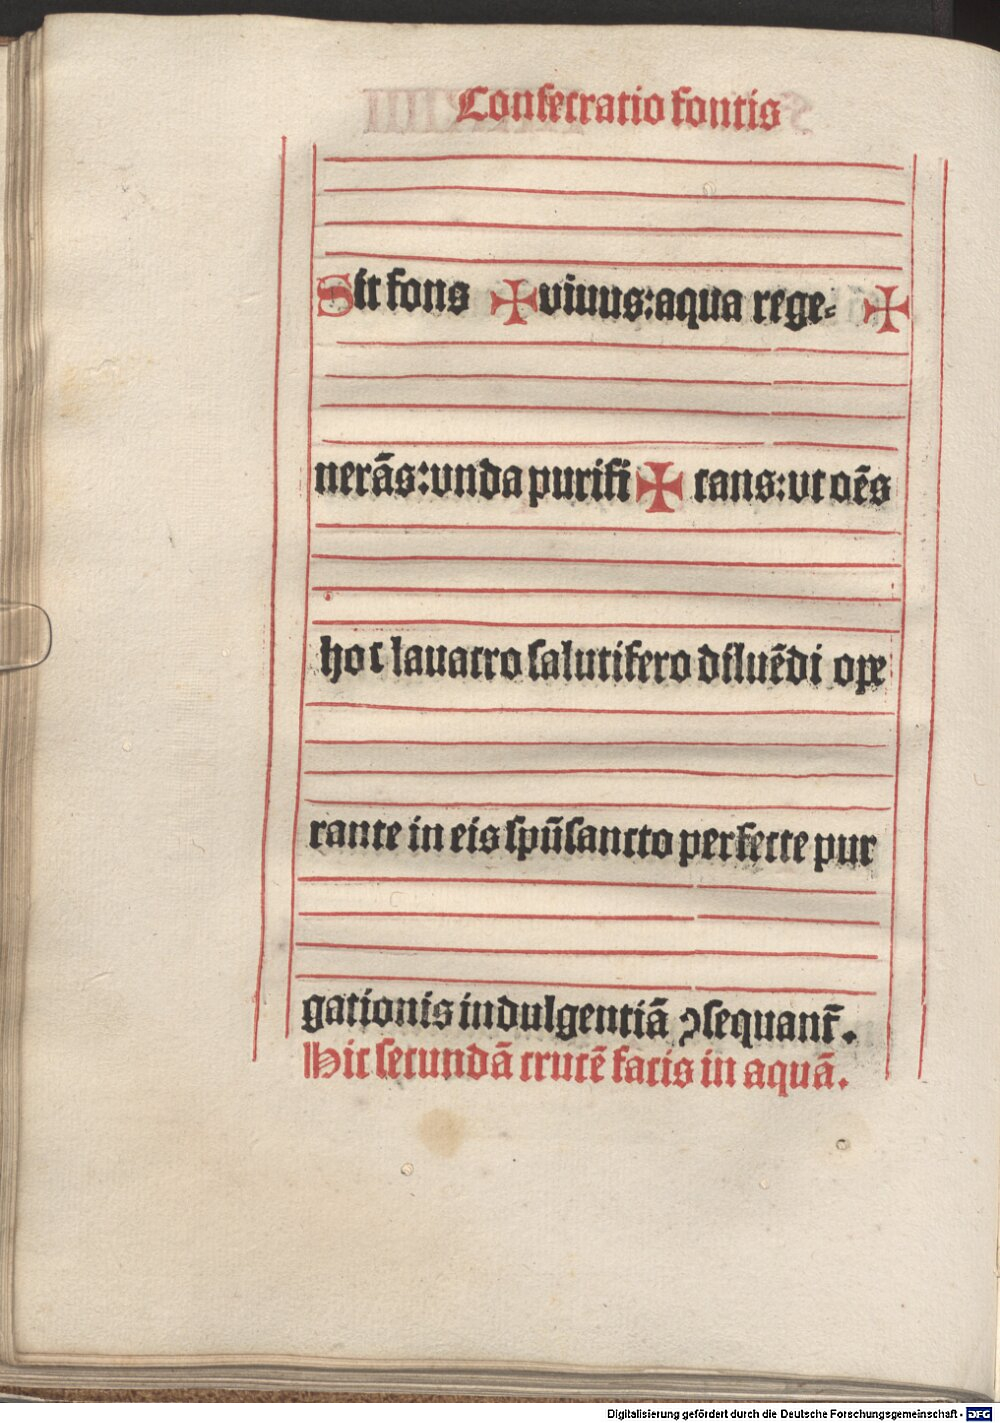 Consecratio fontis
Sit fons ✠ viuus: aqua rege⸗ ✠
nerãs: vnda purifi ✠ cans: vt oẽs
hoc lauacro salutifero diluẽdi ope
rante in eis spũsancto perfecte pur
gationis indulgentiã ↄsequant᷑.
Hic secundã crucẽ facis in aquã.
Digitalisierung gefördert durch die Deutsche Forschungsgemeinschaft - DFG